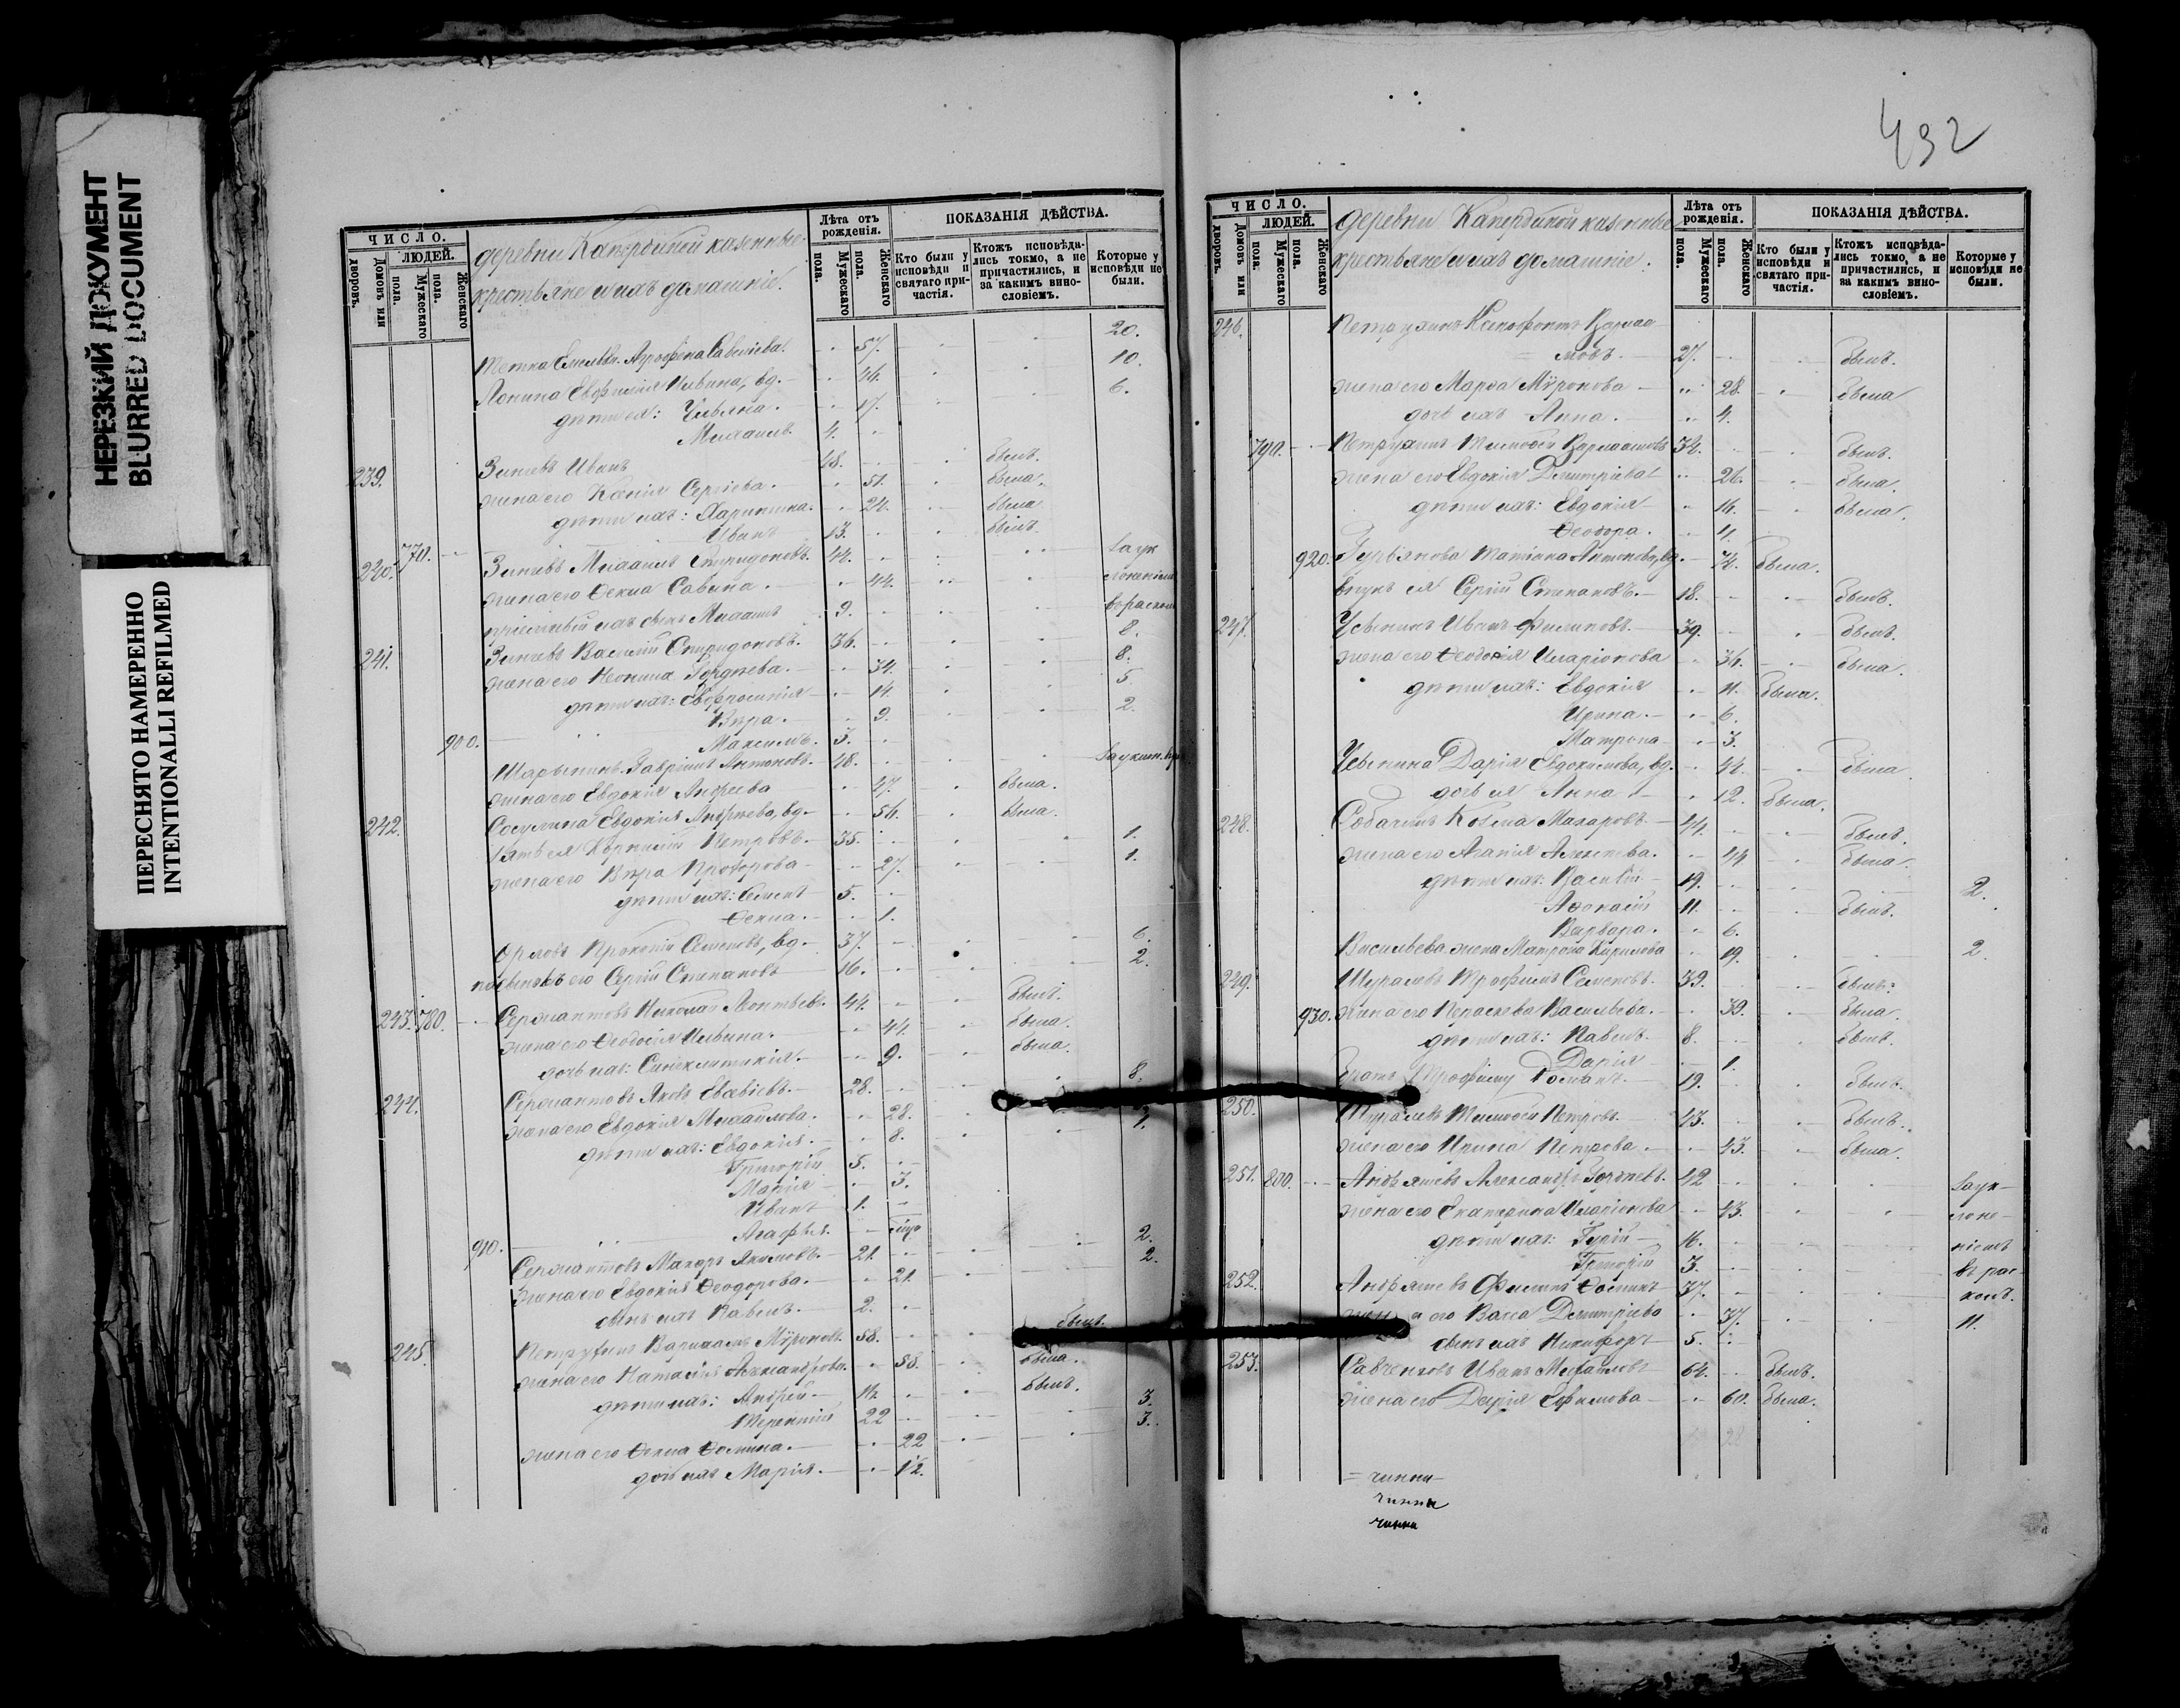 НЕРЕЗКИЙ ДОКУМЕНТ
BLURRED DOCUMENT
ПЕРЕСНЯТО НАМЕРЕННО
INTENTIONALLI REFILMED
ЧИСЛО.
ЛЮДЕЙ.
Домовъ или дворовъ.
Мужескаго пола.
Женскаго пола.
деревни казенные
крестьяне и ихъ домашніе.
Лѣта отъ рожденія.
Мужескаго пола.
Женскаго пола.
ПОКАЗАНІЯ ДѢЙСТВА.
Кто были у исповѣди и святаго причастія.
Ктожъ исповѣдались токмо, а не причастились, и за какимъ винословіемъ.
Которые у исповѣди не были.
Тетка Агрофена Савельева. 57. 20.
Евфимія Ильина, вд. 46. 10.
дѣти ея: Ульяна. 17. 6.
Михаилъ 4.
239. Зинчевъ Иванъ 48. былъ.
жена его Ксенія Сергіева. 51. была.
дѣти ихъ: Харитина. 24. была
Иванъ 13. былъ.
240. 770. Зинчевъ Михаилъ Спиридоновъ. 44.
жена его Ѳекла Савина. 44.
пріемный ихъ сынъ Михаилъ 9.
241. Зинчевъ Василій Спиридоновъ. 36. 8.
жена его Неонила Гордѣева. 34. 8.
дѣти ихъ: Евфросинія 14. 5.
Вѣра. 9. 2.
900. Максимъ. 3.
Шарыпинъ Гавріилъ Антоновъ. 48.
жена его Евдокія Андреева 47. была.
242. Сосулина Евдокія Андреева, вд. 56. была.
зять ея Корнилій Петровъ. 35. 1.
жена его Вѣра Прохорова 27. 1.
дѣти ихъ: Семенъ 5.
Ѳекла. 1.
Орловъ Прокопій Семеновъ, вд. 37. 6.
пасынокъ его Сергій Степановъ 16. 2.
243. 780. Сержантовъ Николай Леонтьевъ. 44. былъ.
жена его Ѳеодосія Ильина. 44. была.
дочь ихъ: Синклитикія. 9. была.
244. Сержантовъ Яковъ Евсевіевъ. 28. 8.
жена его Евдокія Михайлова. 28.
дѣти ихъ: Евдокія. 8. 1.
Григорій 5.
Марія 3.
Иванъ 1.
910. Агафья.
Сержантовъ Макаръ Якимовъ. 21. 2.
жена его Евдокія Ѳеодорова. 21. 2.
сынъ ихъ Павелъ. 2.
245. Петрухинъ Варлаамъ Мѵроновъ. 58. былъ.
жена его Наталія Александрова. 58. была.
дѣти ихъ: Андрей. 14. былъ.
Терентій 22 3.
жена его Ѳекла Ѳомина. 22 3.
дочь ихъ Марія. 1½.
492
ЧИСЛО.
ЛЮДЕЙ.
Домовъ или дворовъ.
Мужескаго пола.
Женскаго пола.
деревни казенные
крестьяне и ихъ домашніе.
Лѣта отъ рожденія.
Мужескаго пола.
Женскаго пола.
ПОКАЗАНІЯ ДѢЙСТВА.
Кто были у исповѣди и святаго причастія.
Ктожъ исповѣдались токмо, а не причастились, и за какимъ винословіемъ.
Которые у исповѣди не были.
246. Петрухинъ Ксенофонтъ Варлаа-
мовъ. 27. былъ.
жена его Марѳа Мѵронова 28. была
дочь ихъ Анна. 4.
790. Петрухинъ Тимофей Варлаамовъ 34. былъ.
жена его Евдокія Димитріева 26. была.
дѣти ихъ: Евдокія 14. была.
Ѳеодора. 4.
920. Гурьянова Татіана Антонова, вд. 74. была.
внукъ ея Сергій Степановъ. 18. былъ.
247. Усынинъ Иванъ Филиповъ. 39. былъ.
жена его Ѳеодосія Иларіонова 36. была.
дѣти ихъ: Евдокія 11. была.
Ирина. 6.
Матрона 3.
Усынина Дарія Евдокимова, вд. 44. была.
дочь ея Анна 12. была.
248. Козма Макаровъ. 44. былъ.
жена его Агапія Алексѣева. 44 была.
дѣти ихъ: Василій 19. 2.
Аѳонасій 11. былъ.
Варвара. 6.
Васильева жена Матрона Кирилова 19. 2.
249. Шуралевъ Трофимъ Семеновъ. 39. былъ.
930. жена его Параскева Васильева. 39. была.
дѣти ихъ: Павелъ. 8. былъ.
Дарія 1.
братъ Трофиму Романъ. 19. былъ.
250. Шуралевъ Тимофей Петровъ. 43. былъ.
жена его Ирина Петрова. 43. была.
251. 800. Андряшевъ Александръ Гордѣевъ. 42 за ук-
жена его Екатерина Иларіонова 43. лоне-
дѣти ихъ: Гурій 16. ніемъ
Григорій 3. въ рас-
252. Андряшевъ Филипъ Ѳоминъ 37. колъ.
жена его Васса Димитріева 37. 11.
сынъ ихъ Никифоръ 5.
253. Савченковъ Иванъ Михайловъ 64. былъ.
жена его Дарія Ефимова 60. была.